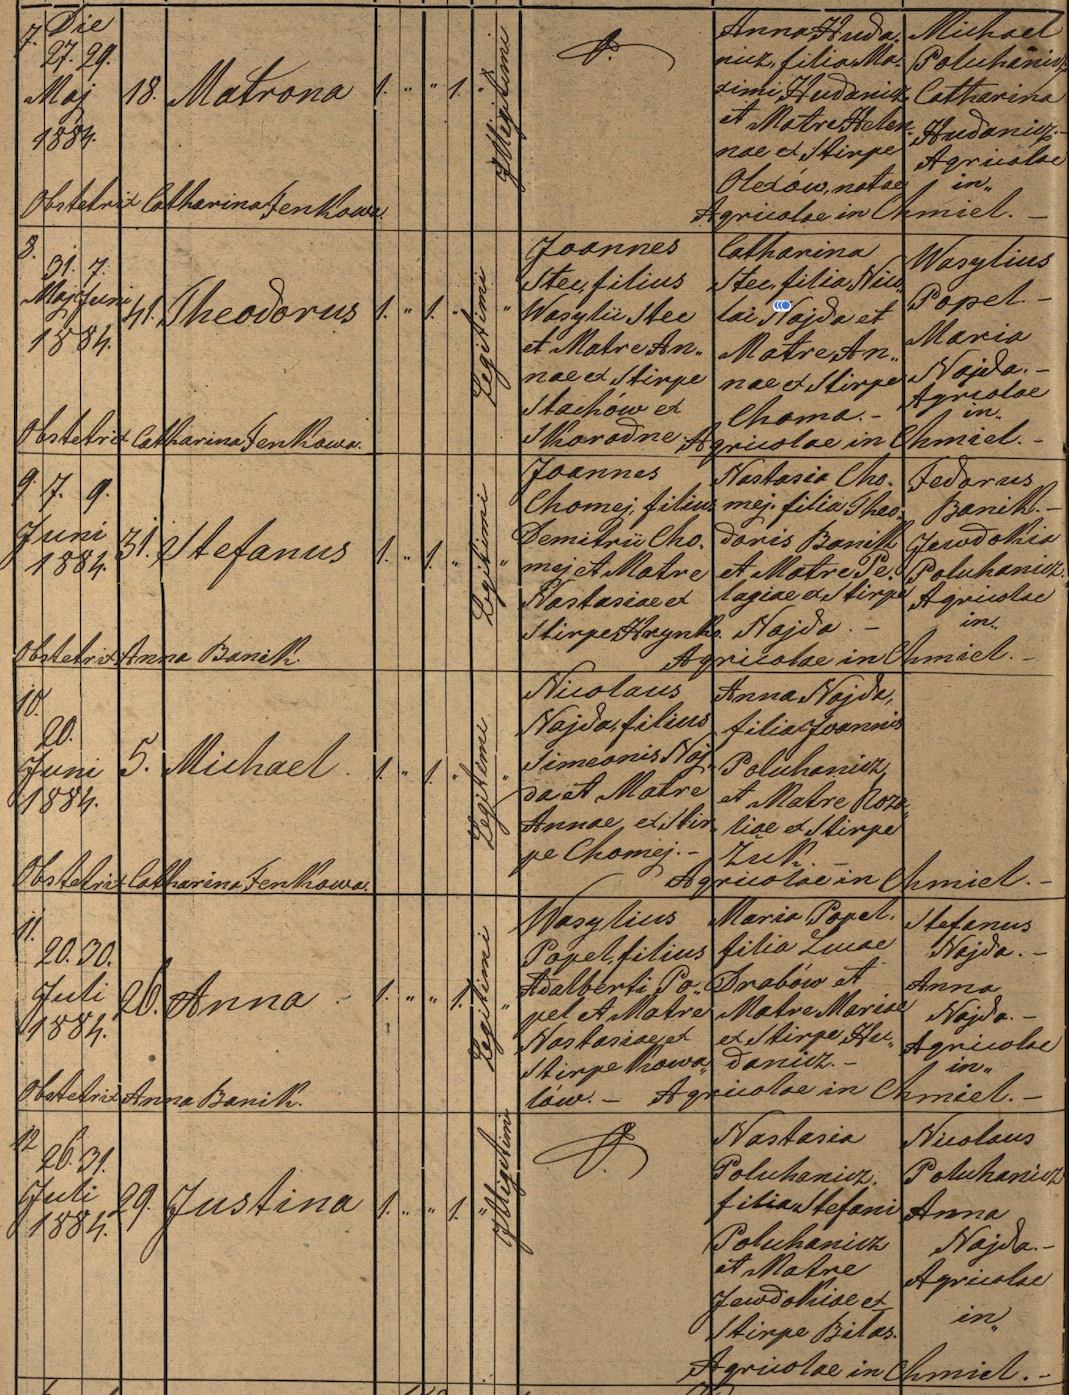 7. Die
27. 29.
Maj
1884.
18. Matrona
1. " " 1. "
Illegitimi
Anna Huda,
nicz, filia Ma,
ximi Hudanicz
et Matre Helen,
nae ex Stirpe
Olexów, natae
Agricolae in Chmiel. —
Michael
Poluhanicz,
Catharina
Hudanicz. —
Agricolae
in,,
Obstetrix Catharina Fenkowa.
8.
31. 7.
Maj Juni
1884.
41. Theodorus
1. " 1. " "
Legitimi
Joannes
Stec, filius
Wasylii Stec
et Matre An,,
nae ex Stirpe
Stachów ex
Skorodne.
Catharina
Stec, filia Nico,
lai Najda et
Matre An,,
nae ex Stirpe
Choma. —
Agricolae in Chmiel. —
Wasylius
Popel. —
Maria
Najda. —
Agricolae
in,,
Obstetrix Catharina Fenkowa.
9. 7. 9.
Juni
1884.
31. Stefanus
1. " 1. " "
Legitimi
Joannes
Chomej, filius
Demitrii Cho,
mej et Matre
Nastasiae ex
Stirpe Hrynko.
Nastasia Cho,
mej, filia Theo,
doris Banik
et Matre Pe,
lagiae ex Stirpe
Najda. —
Agricolae in Chmiel. —
Fedorus
Banik. —
Jewdokia
Poluhanicz.
Agricolae
in,,
Obstetrix Anna Banik.
10.
20.
Juni
1884.
5. Michael.
1. " 1. " "
Legitimi
Nicolaus
Najda, filius
Simeonis Naj,
da et Matre
Annae ex Stir,
pe Chomej. —
Anna Najda,
filia Joannis
Poluhanicz,
et Matre Roza,
liae ex Stirpe
Żuk. —
Agricolae in Chmiel. —
Obstetrix Catharina Fenkowa.
11.
20. 30.
Juli
1884.
26. Anna
1. " " 1. "
Legitimi
Wasylius
Popel, filius
Adalberti Po,,
pel et Matre
Nastasiae ex
Stirpe Kowa,,
lów. —
Maria Popel.
filia Lucae
Drabów et
Matre Mariae
ex Stirpe Hu,,
danicz. —
Agricolae in Chmiel. —
Stefanus
Najda. —
Anna
Najda. —
Agricolae
in,,
Obstetrix Anna Banik.
12
26. 31.
Juli
1884.
29. Justina
1. " " 1. "
Illegitimi
Nastasia
Poluhanicz.
filia Stefani
Poluhanicz
et Matre
Jewdokiae ex
Stirpe Bilas.
Agricolae in Chmiel. —
Nicolaus
Poluhanicz
Anna
Najda. —
Agricolae
in,,